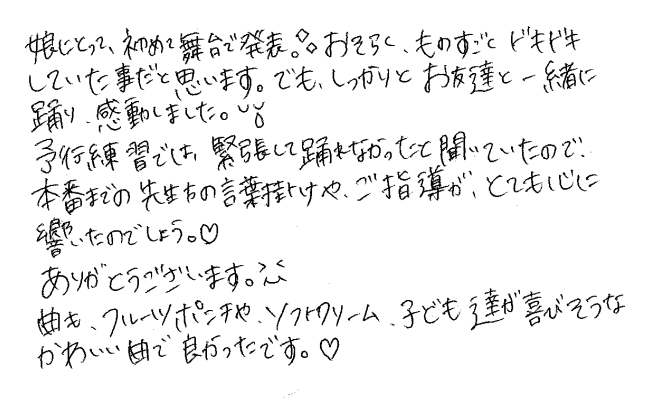 娘にとって、初めて舞台で発表。おそらく、ものすごくドキドキ
していた事だと思います。でも、しっかりとお友達と一緒に
踊り、感動しました。
予行練習では、緊張して踊れなかったと聞いていたので、
本番までの先生方の言葉掛けや、ご指導が、とても心に
響いたのでしょう。♡
ありがとうございます。
曲も、フルーツポンチや、ソフトクリーム、子ども達が喜びそうな
かわいい曲で良かったです。♡